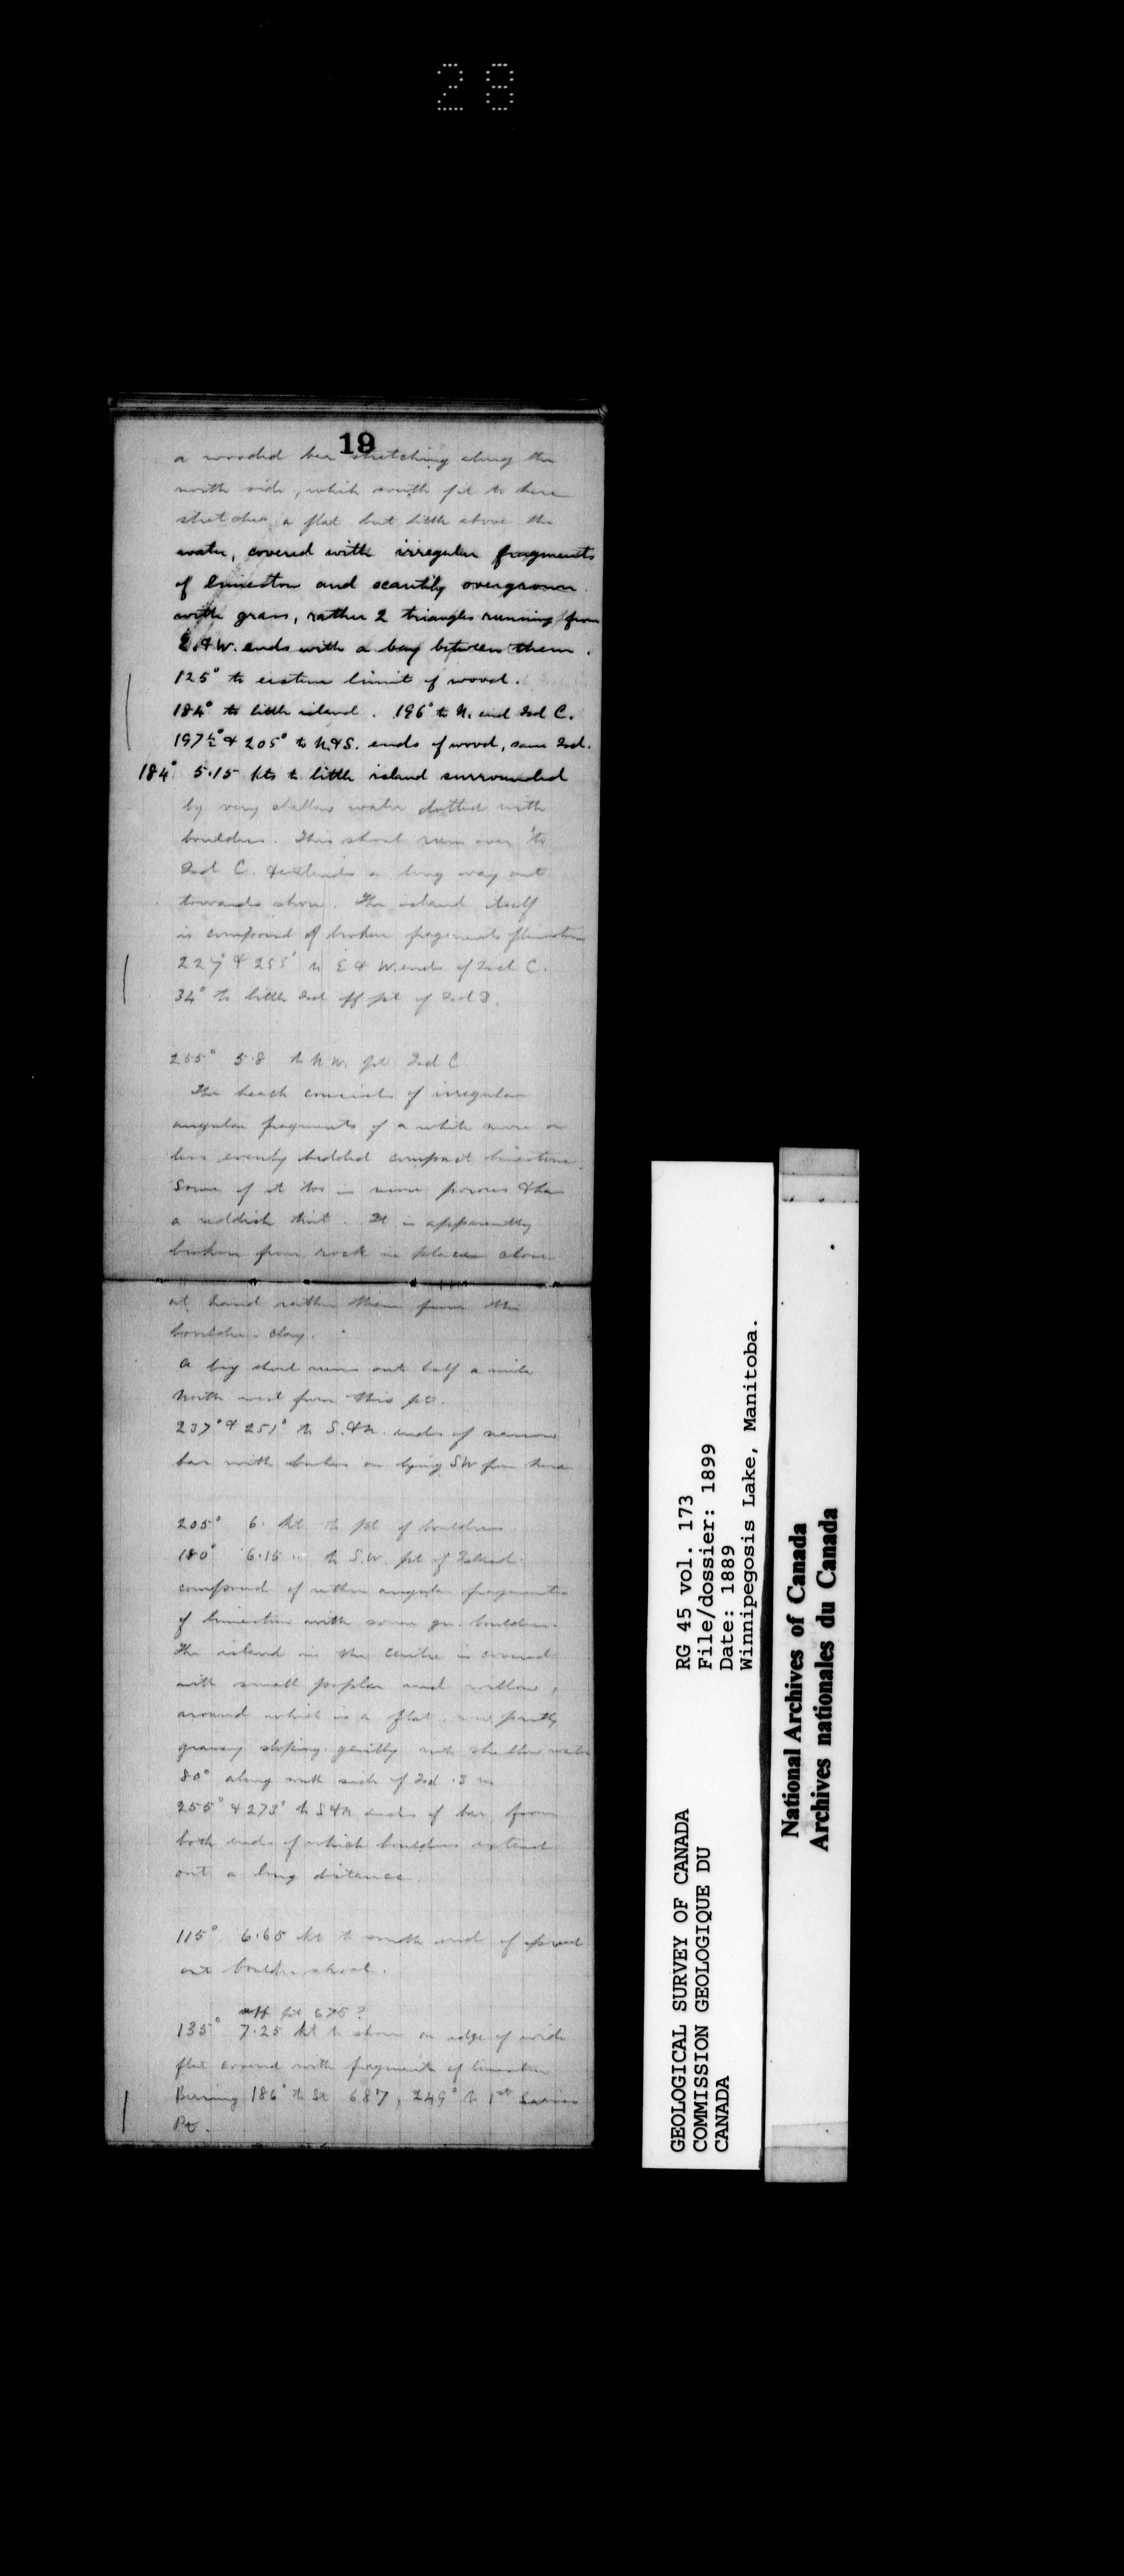 28
19
a wooded bar stretching along the
north side, while south of it to here
stretches a flat but little above the
water, covered with irregular fragments
of limeston and scantily overgrown
with grass, rather 2 triangles running from
E. & W. ends with a bay between them.
125° to eastern limit of wood.
184° to little island. 196° to N. end Isd C.
197½° & 205° to N. & S. ends of wood, same Isd.
184° 5.15 kts to little island surrounded
by very shallow water dotted with
boulders. This shoal runs over to
Isd C. & extends a long way out
towards shore. The island itself
is composed of broken fragments limeston
227° & 255° to E & W. ends of Isd C.
34° to little Isd off pt of Isd B.
255° 5.8 to N.W. pt Isd C
The beach consists of irregular
angular fragments of a white more or
less evenly bedded compact limestone.
Some of it too is more porous & has
a reddish tint. It is apparently
broken from rock in places close
at hand rather than from the
boulder clay.
A big shoal runs out half a mile
north west from this pt.
237° & 251° to S. & N. ends of narrow
bar with bushes on lying SW from here
205° 6. kt to pt of boulders
180° 6.15 " to S.W. pt of Island
composed of rather angular fragments
of limeston with some gn. boulders.
The island in the centre is covered
with small poplar and willow,
around which is a flat, now partly
grassy sloping gently into shallow water
80° along south side of Isd .3 m
255° & 273° to S & N ends of bar, from
both ends of which boulders extend
out a long distance.
115° 6.65 kt to south end of spread
out boulder shoal.
off pt 675?
135° 7.25 kt to shore on edge of wide
flat covered with fragments of limeston
Bearing 186° to St 687, 249° to 1st
Pt.
GEOLOGICAL SURVEY OF CANADA
COMMISSION GEOLOGIQUE DU
CANADA
RG 45 vol. 173
File/dossier: 1899
Date: 1889
Winnipegosis Lake, Manitoba.
National Archives of Canada
Archives nationales du Canada